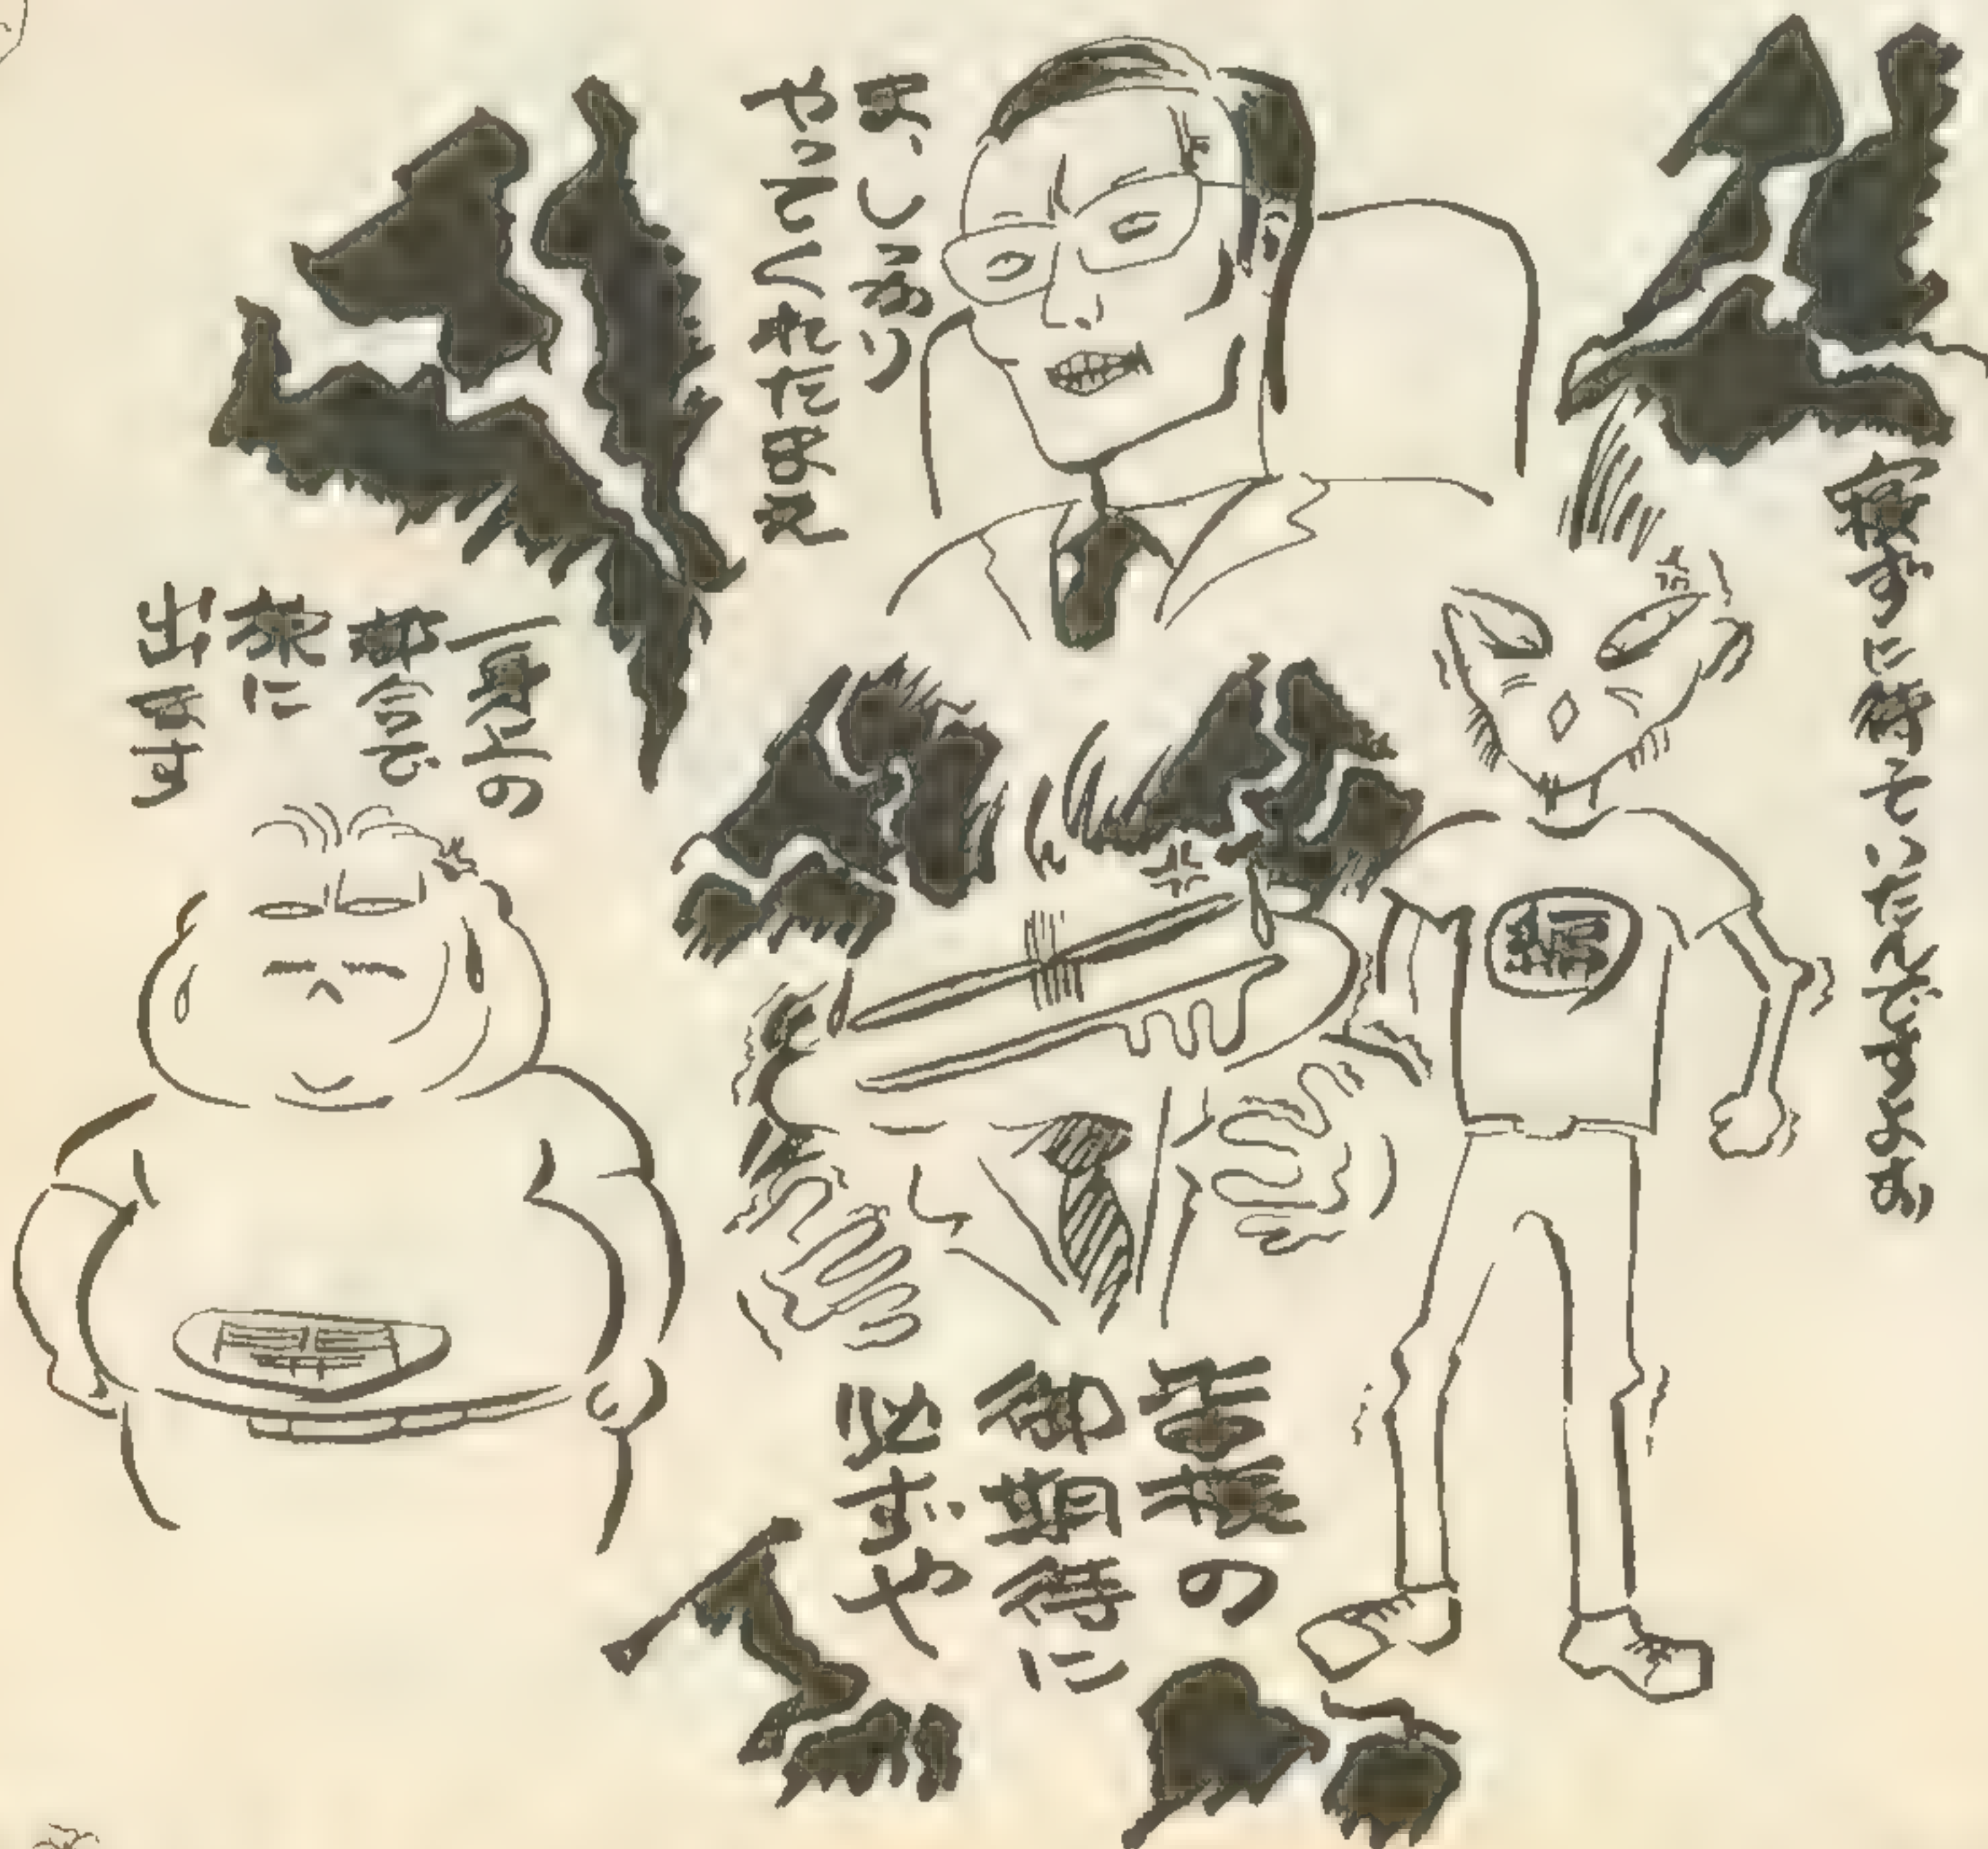 寝ずに待っていたん
ま、しっかり
やってくれたまえ
一身上の
都合で
旅に
出ます
編
皆様の
御期待に
必ずや